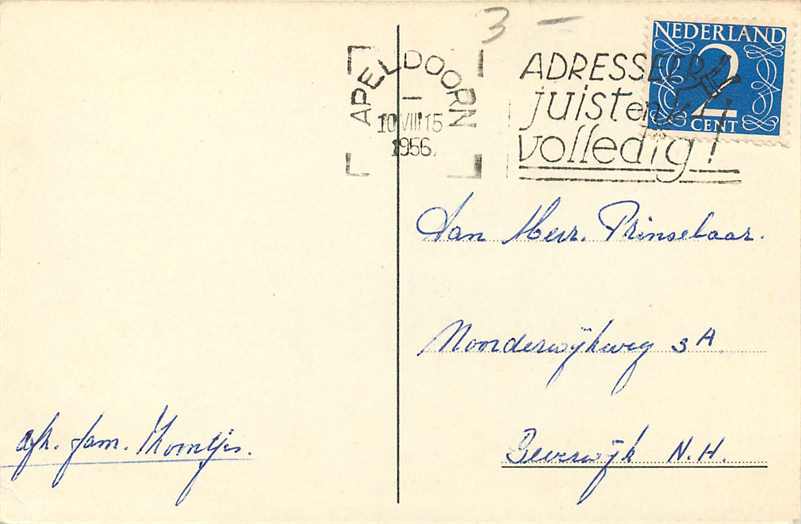 3 –
APELDOORN
10 VIII 15
1956
NEDERLAND
2
CENT
ADRESSEER
juist en
volledig!
Aan Heer. Prinselaar.
Noorderwijkweg 3A
Beverwijk N.H.
afz. fam.